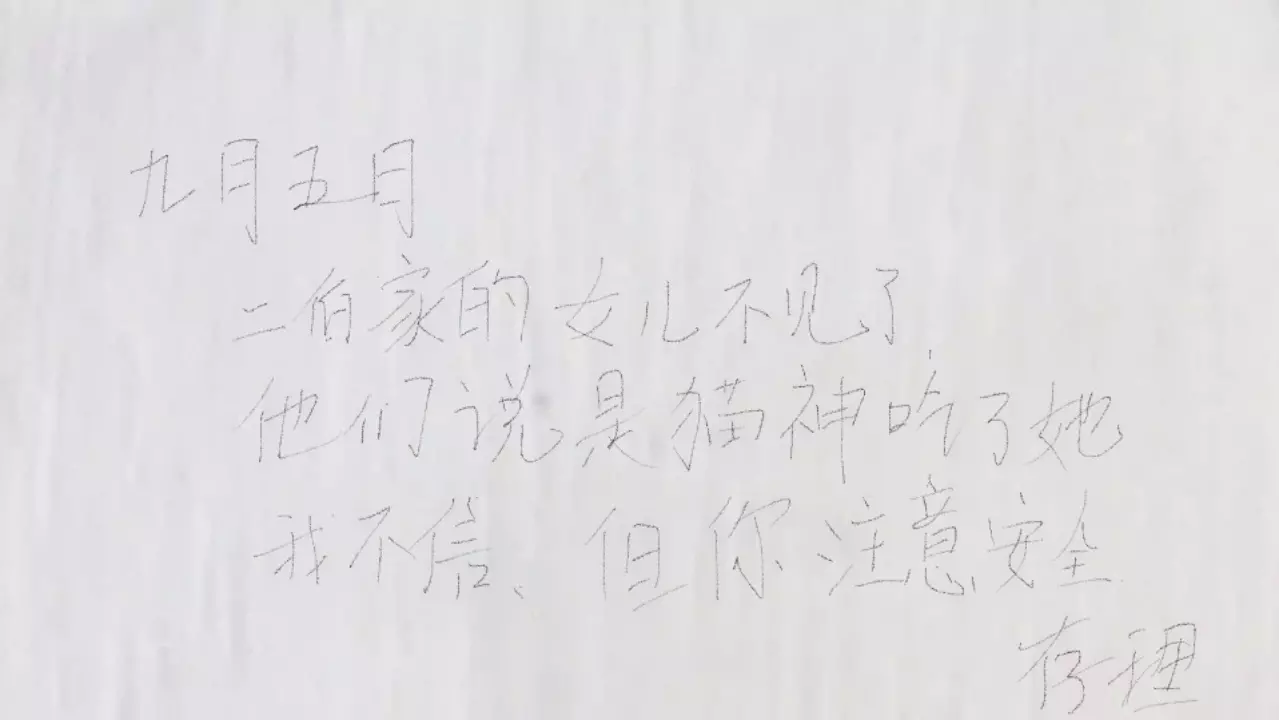 九月五月
二伯家的女儿不见了
他们说是猫神吃了她
我不信、但你注意安全
存理